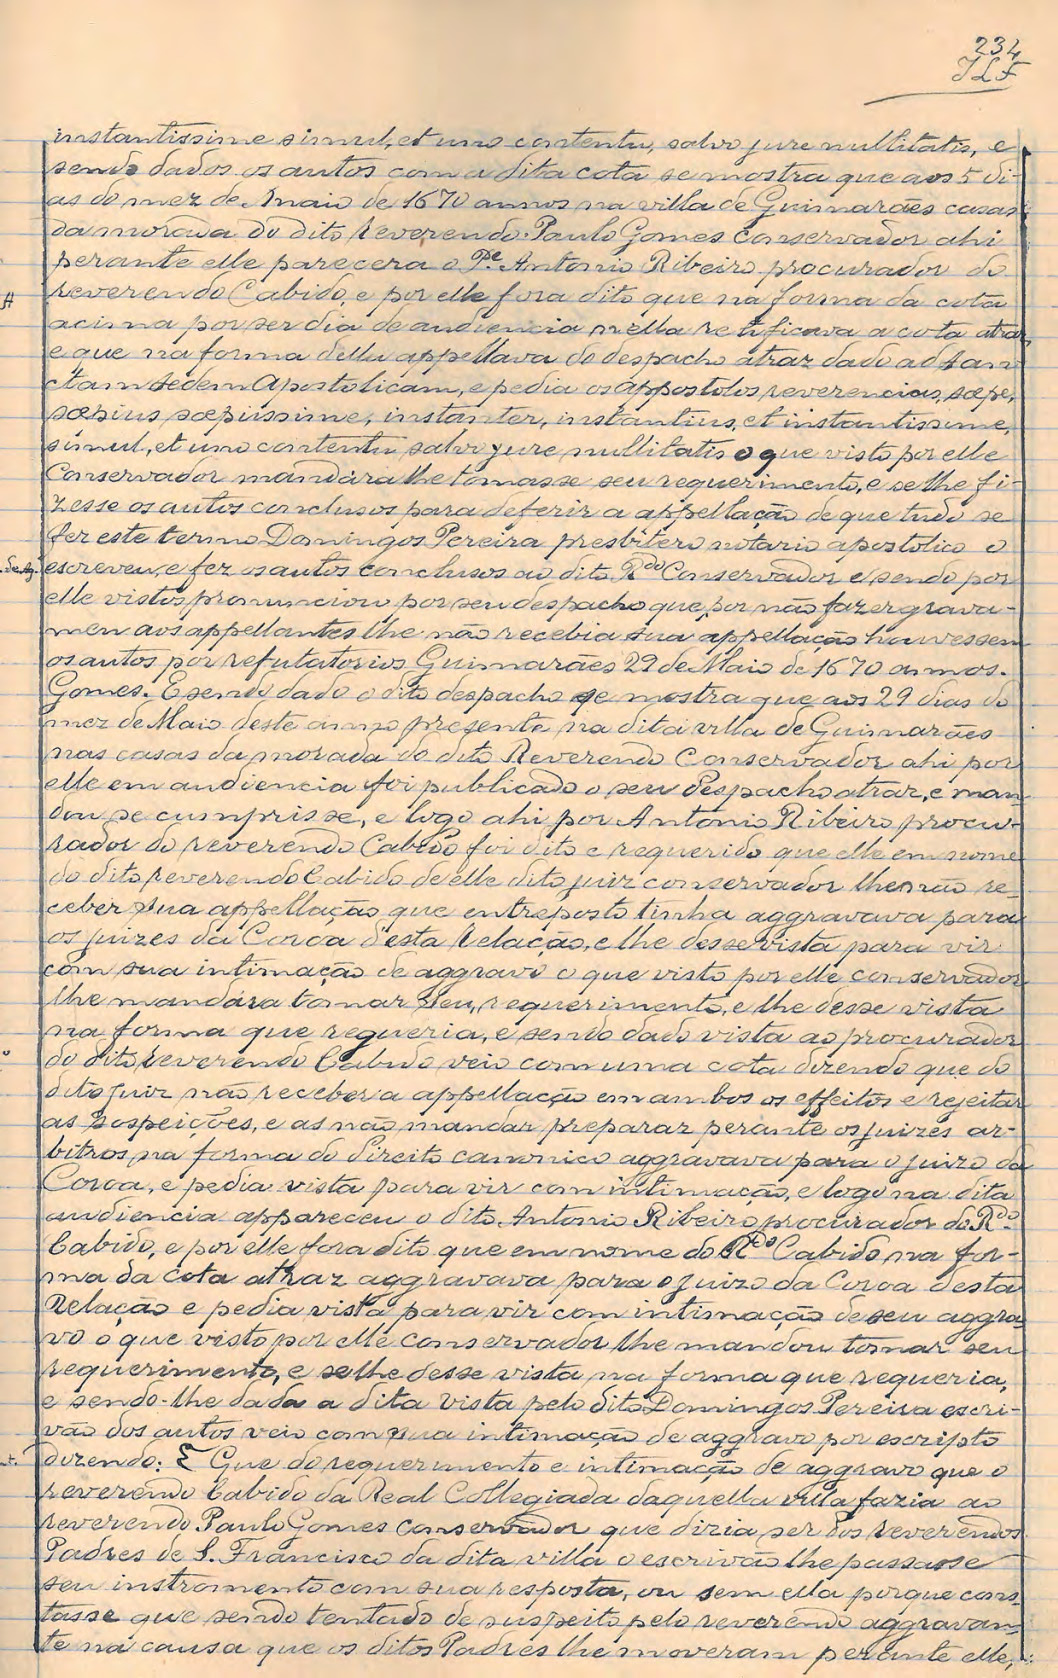 234
JLF
instantissime simul, et uno contentu, salvo jure nullitatis, e
sendo dados os autos com a dita cota se mostra que aos 5 di-
as do mez de Maio de 1670 annos na villa de Guimarães casas
da morada do dito Reverendo Paulo Gomes Conservador ahi
perante elle parecera o Pe. Antonio Ribeiro procurador do
reverendo Cabido, e por elle fora dito que na forma da cota
acima por ser dia de audiencia nella retificava a cota atraz,
e que na forma della appellava do despacho atraz dado ad San
ctam sedem Apostolicam, e pedia os appostolos reverencias, sæpe,
sæpius sæpiissime, instanter, instantius, et instantissime,
simul, et uno contentu salvo jure nullitatis o que visto por elle
Conservador mandára lhe tomasse seu requerimento, e se lhe fi-
zesse os autos conclusos para deferir a appellação de que tudo se
fez este termo Domingos Pereira presbitero notario apostolico o
escreveu, e fez os autos conclusos ao dito Rdo Conservador e sendo por
elle vistos pronunciou por seu despacho que por não fazer grava-
men aos appellantes lhe não recebia sua appellação houvessem
os autos por refutatorios Guimarães 29 de Maio de 1670 annos.
Gomes. E sendo dado o dito despacho se mostra que aos 29 dias do
mez de Maio deste anno presente na dita villa de Guimarães
nas casas da morada do dito Reverendo Conservador ahi por
elle em audiencia foi publicado o seu despacho atraz, e man
dou se cumprisse, e logo ahi por Antonio Ribeiro procu-
rador do reverendo Cabido foi dito e requerido que elle em nome
do dito reverendo Cabido de elle dito juiz conservador lhe não re
ceber sua appellação que entreposto tinha aggravava para
os juizes da Coroa desta Relação, e lhe desse vista para vir
com sua intimação de aggravo o que visto por elle conservador
lhe mandára tomar seu requerimento, e lhe desse vista
na forma que requeria, e sendo dado vista ao procurador
do dito reverendo Cabido veio com uma cota dizendo que do
dito juiz não receber a appellação em ambos os effeitos e rejeitar
as suspeições, e as não mandar preparar perante os juizes ar-
bitros na forma do Direito canonico aggravava para o juizo da
Coroa, e pedia vista para vir com intimação, e logo na dita
audiencia appareceu o dito Antonio Ribeiro procurador do Rdo
Cabido, e por elle fora dito que em nome do Rdo Cabido, na for-
ma da cota atraz aggravava para o juizo da Coroa desta
Relação e pedia vista para vir com intimação de seu aggra-
vo o que visto por elle conservador lhe mandou tomar seu
requerimento, e se lhe desse vista na forma que requeria,
e sendo-lhe dada a dita vista pelo dito Domingos Pereira escri-
vão dos autos veio com sua intimação de aggravo por escripto
dizendo: E Que do requerimento e intimação de aggravo que o
reverendo Cabido da Real Collegiada daquella villa fazia ao
reverendo Paulo Gomes conservador que dizia ser dos reverendos
Padres de S. Francisco da dita villa o escrivão lhe passasse
seu instromento com sua resposta, ou sem ella porque cons-
tasse que sendo tentado de suspeito pelo reverendo aggravan-
te na causa que os ditos Padres lhe moveram perante elle,